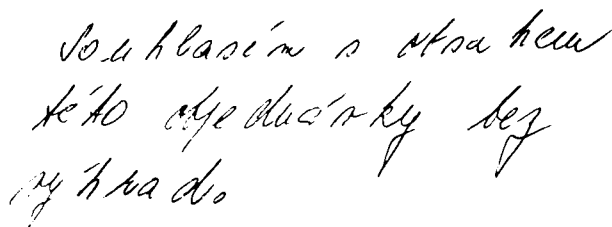 Souhlasím s obsahem
této objednávky bez
výhrad.